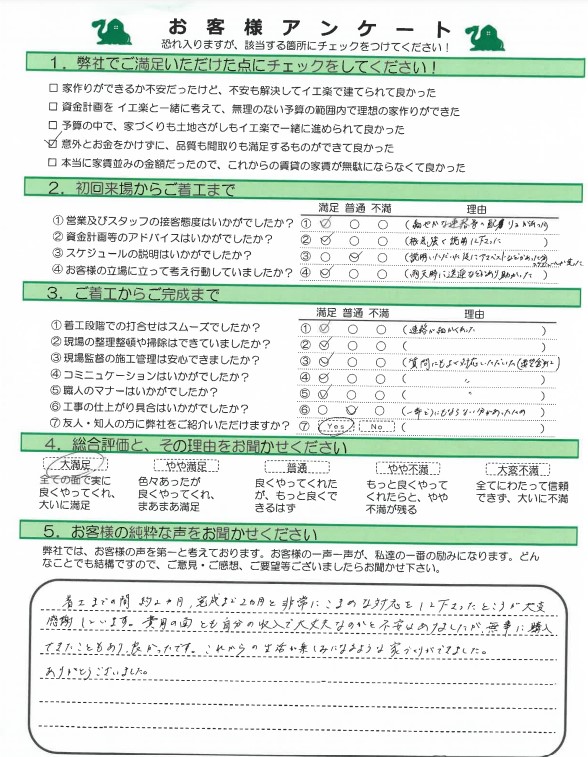 お客様アンケート
恐れ入りますが、該当する箇所にチェックをつけてください！
１．弊社でご満足いただけた点にチェックをしてください！
□ 家作りができるか不安だったけど、不安も解決してイエ楽で建てられて良かった
□ 資金計画を イエ楽と一緒に考えて、無理のない予算の範囲内で理想の家作りができた
□ 予算の中で、家づくりも土地さがしもイエ楽で一緒に進められて良かった
☑ 意外とお金をかけずに、品質も間取りも満足するものができて良かった
□ 本当に家賃並みの金額だったので、これからの賃貸の家賃が無駄にならなくて良かった
２．初回来場からご着工まで
満足 普通 不満 理由
① 営業及びスタッフの接客態度はいかがでしたか？ ① ☑ ○ ○ (細やかな連絡等の)
② 資金計画等のアドバイスはいかがでしたか？ ② ☑ ○ ○ (根気強く説明して下さった)
③ スケジュールの説明はいかがでしたか？ ③ ○ ☑ ○ (説明いただいた
④ お客様の立場に立って考え行動していましたか？ ④ ☑ ○ ○ (雨天時に送迎などあり助かった)
３．ご着工からご完成まで
満足 普通 不満 理由
① 着工段階での打合せはスムーズでしたか？ ① ☑ ○ ○ (連絡が細かくあった)
② 現場の整理整頓や掃除はできていましたか？ ② ☑ ○ ○ ( )
③ 現場監督の施工管理は安心できましたか？ ③ ☑ ○ ○ (質問にもよく対応いただいた
④ コミニュケーションはいかがでしたか？ ④ ☑ ○ ○ ( 〃 )
⑤ 職人のマナーはいかがでしたか？ ⑤ ☑ ○ ○ ( 〃 )
⑥ 工事の仕上がり具合はいかがでしたか？ ⑥ ○ ☑ ○ (
⑦ 友人・知人の方に弊社をご紹介いただけますか？ ⑦ Yes No ( )
４．総合評価と、その理由をお聞かせください
大満足 やや満足 普通 やや不満 大変不満
全ての面で実に 色々あったが 良くやってくれた もっと良くやって 全てにわたって信頼
良くやってくれ、 良くやってくれ、 が、もっと良くで くれたらと、やや できず、大いに不満
大いに満足 まあまあ満足 きるはず 不満が残る
５．お客様の純粋な声をお聞かせください
弊社では、お客様の声を第一と考えております。お客様の一声一声が、私達の一番の励みになります。どん
なことでも結構ですので、ご意見・ご感想、ご要望等ございましたらお聞かせ下さい。
着工までの間 約2ヶ月、完成まで2ヵ月と非常にこまめな対応をして下さったところが大変
感謝しています。費用の面とも自分の収入で大丈夫なのかと不安はありましたが、無事に購入
できたこともあり、良かったです。これからの生活が楽しみになるような家づくりができました。
ありがとうございました。